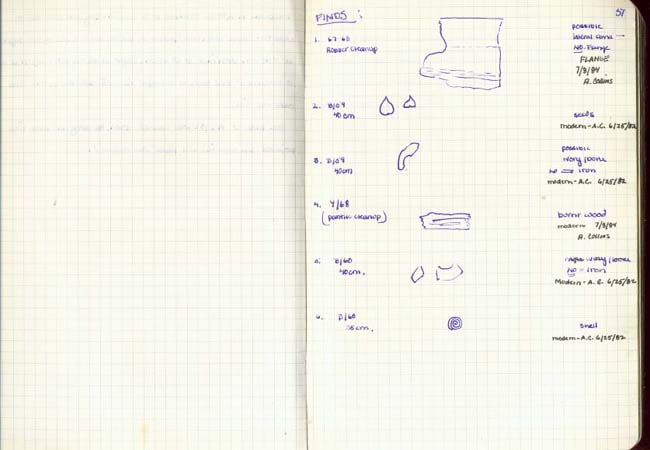 57
FINDS :
1. 67-60
Robber cleanup
possible
burial cone
NO. Flange
FLANGE
7/3/84
A. Collins
2. D/09
40 cm
seeds
modern - A.C. 6/25/82
3. D/09
40cm
possible
ivory/bone
NO iron
modern - A.C. 6/25/82
4. Y/68
(partial cleanup)
burnt wood
modern 7/3/84
A. Collins
5. D/60
40cm.
ivory/bone
NO - iron
Modern - A.C. 6/25/82
6. D/60
35cm.
shell
modern - A.C. 6/25/82